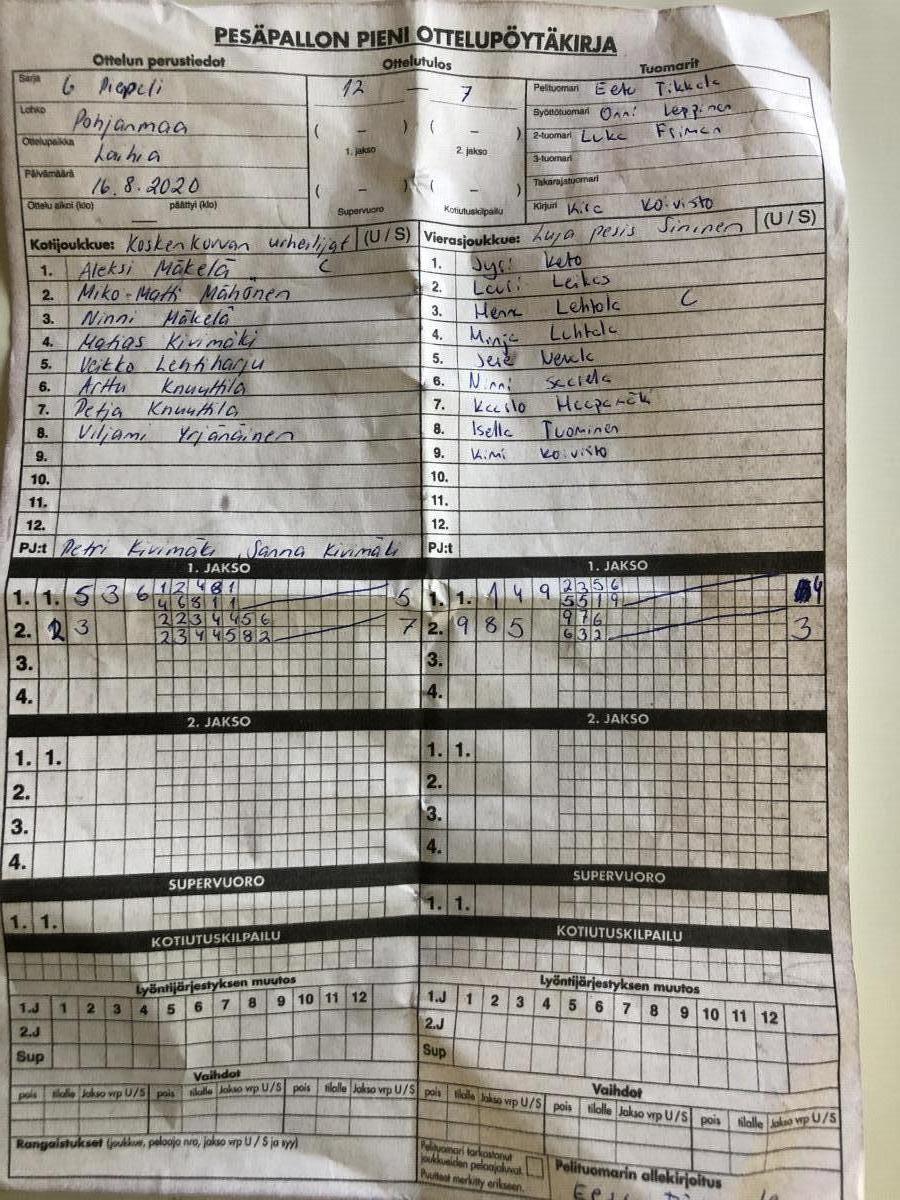 PESÄPALLON PIENI OTTELUPÖYTÄKIRJA
Ottelun perustiedot
Ottelutulos
Tuomarit
Sarja G
12 — 7
Pelituomari Eetu Tikkala
Lohko Pohjanmaa
Syöttötuomari Onni Leppinen
Ottelupaikka Laihia
( – ) ( – )
1. jakso 2. jakso
2-tuomari Luka Friman
3-tuomari
Päivämäärä 16.8.2020
( – ) ( – )
Takarajatuomari
Ottelu alkoi (klo) päättyi (klo)
Supervuoro Kotiutuskilpailu
Kirjuri Koivisto
Kotijoukkue: Koskenkorvan urheilijat (U / S)
1. Aleksi Mäkelä C
2. Miko-Matti Mähönen
3. Ninni Mäkelä
4. Matias Kivimäki
5. Veikko Lehtiharju
6. Arttu Knuuttila
7. Petja Knuuttila
8. Viljami Yrjänäinen
9.
10.
11.
12.
PJ:t Petri Kivimäki, Sanna Kivimäki
Vierasjoukkue: Luja pesis Sininen (U / S)
1. Jyri Keto
2. Lauri Leikas
3. Lehtola C
4. Minja Lehtola
5. Jere
6. Ninni
7. Kaasto Haapamäki
8. Isella Tuominen
9. Kimi Koivisto
10.
11.
12.
PJ:t
1. JAKSO
1. 1. 5 3 6 1 2 4 8 1 5
4 6 8 1 1
2. 2 3 2 2 3 4 4 5 6 7
2 3 4 4 5 8 2
3.
4.
1. JAKSO
1. 1. 1 4 9 2 3 5 6 4
5 5 1 9
2. 9 8 5 9 7 6 3
6 3 2
3.
4.
2. JAKSO
1. 1.
2.
3.
4.
2. JAKSO
1. 1.
2.
3.
4.
SUPERVUORO
1. 1.
SUPERVUORO
1. 1.
KOTIUTUSKILPAILU
KOTIUTUSKILPAILU
Lyöntijärjestyksen muutos
1.J 1 2 3 4 5 6 7 8 9 10 11 12
2.J
Sup
Lyöntijärjestyksen muutos
1.J 1 2 3 4 5 6 7 8 9 10 11 12
2.J
Sup
Vaihdot
pois tilalle Jakso vrp U / S pois tilalle Jakso vrp U / S pois tilalle Jakso vrp U / S
Vaihdot
pois tilalle Jakso vrp U / S pois tilalle Jakso vrp U / S pois tilalle Jakso vrp U / S
Rangaistukset (joukkue, pelaaja nro, jakso vrp U / S ja syy)
Pelituomari tarkastanut
joukkueiden pelaajaluvat.
Puutteet merkitty erikseen.
Pelituomarin allekirjoitus